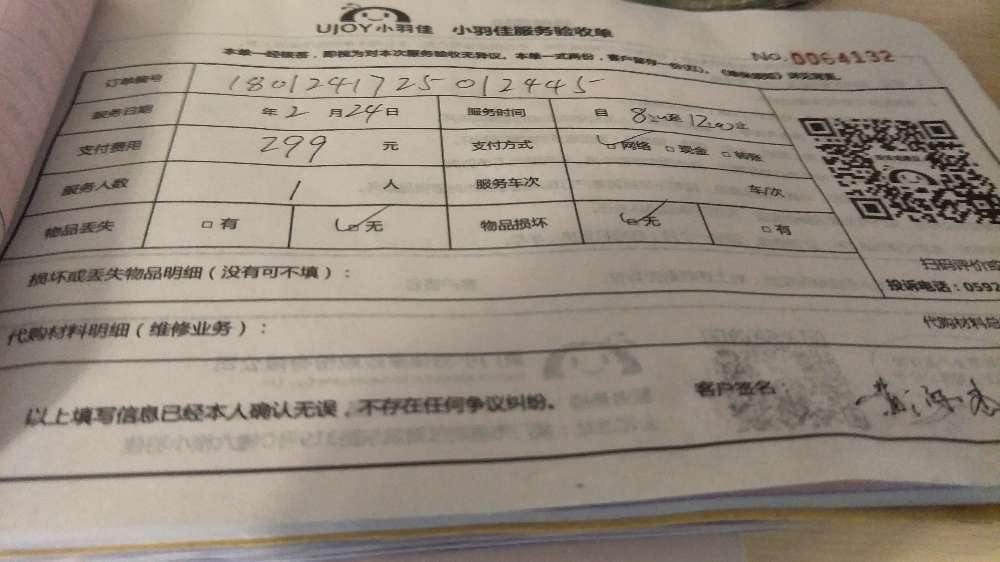 UJOY小羽佳 小羽佳服务验收单
本单一经核签，即视为对本次服务验收无异议。本单一式两份，客户留存一份(红)。
No. 0064132
订单编号 180124172501 2445
服务日期 年 2 月 24 日 服务时间 自 8:00 至 12:00 止
支付费用 299 元 支付方式 网络 □ 现金 □ 转账
服务人数 1 人 服务车次 车/次
物品丢失 □ 有 无 物品损坏 无 □ 有
损坏或丢失物品明细（没有可不填）：
扫码评价或
投诉电话：0592
代购材料明细（维修业务）：
代购材料总
以上填写信息已经本人确认无误，不存在任何争议纠纷。
客户签名：